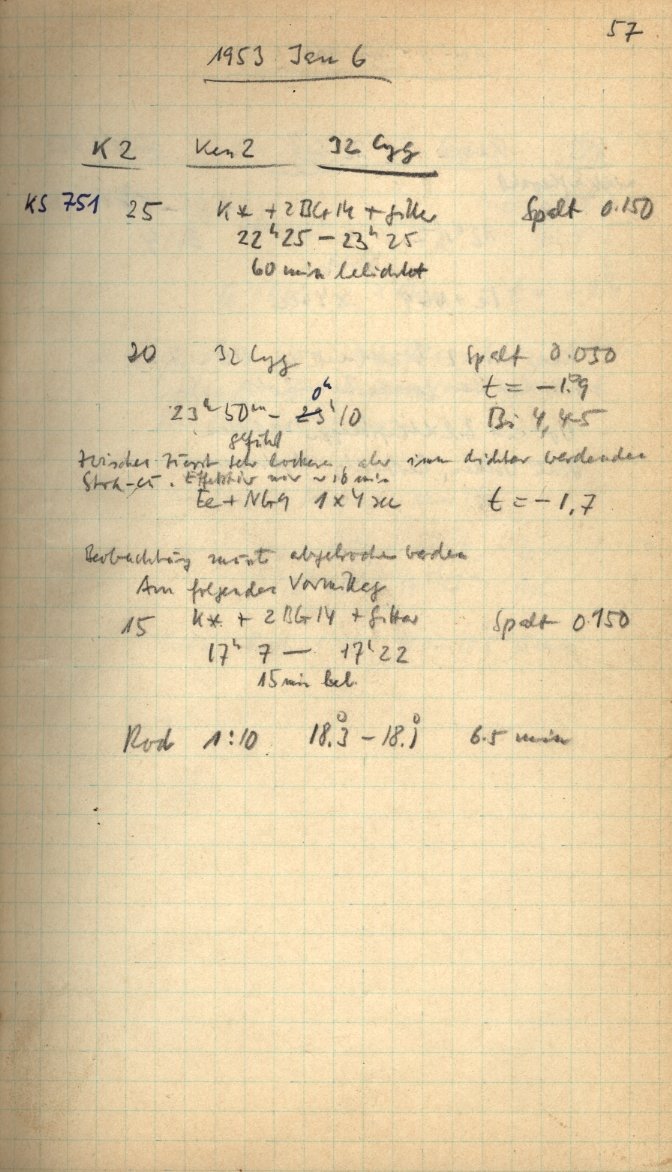 57
1953 Jan 6
K2 Ken 2 32 Cyg
KS 751 25 K* + 2BG14 + Gitter Spalt 0.150
22ʰ25 – 23ʰ25
60 min belichtet
20 32 Cyg Spalt 0.050
t = –1.9
0ʰ
23ʰ50ᵐ – 23ʰ10 Bi 4,4-5
geführt
zuerst sehr lockere, aber dichter werdenden
Str-cu. Effektiv nur ~ 10 min
Fe + NG9 1 x 4 sec t = –1,7
Beobachtung musste abgebrochen werden
Am folgenden Vormittag
15 K* + 2BG14 + Gitter Spalt 0.150
17ʰ 7 — 17ʰ22
15 min bel.
Rod 1:10 18.°3 – 18.°1 6.5 min